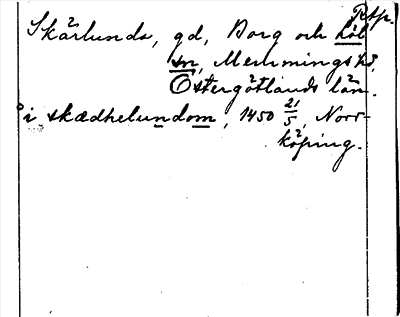 Rtjr.
Skärlunda, gd, Borg och Löt
sn, Memmings hd,
Östergötlands län.
i skædhelundom, 1450 21/5, Norr-
köping.